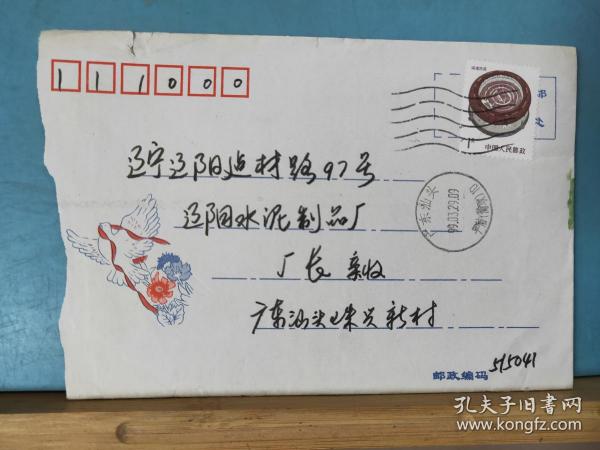 111000
中国人民邮政
辽宁辽阳建材路97号
辽阳水泥制品厂
厂长 亲收
广东汕头珠贝新村
邮政编码 515041
99.03.29.09
孔夫子旧书网
www.kongfz.com